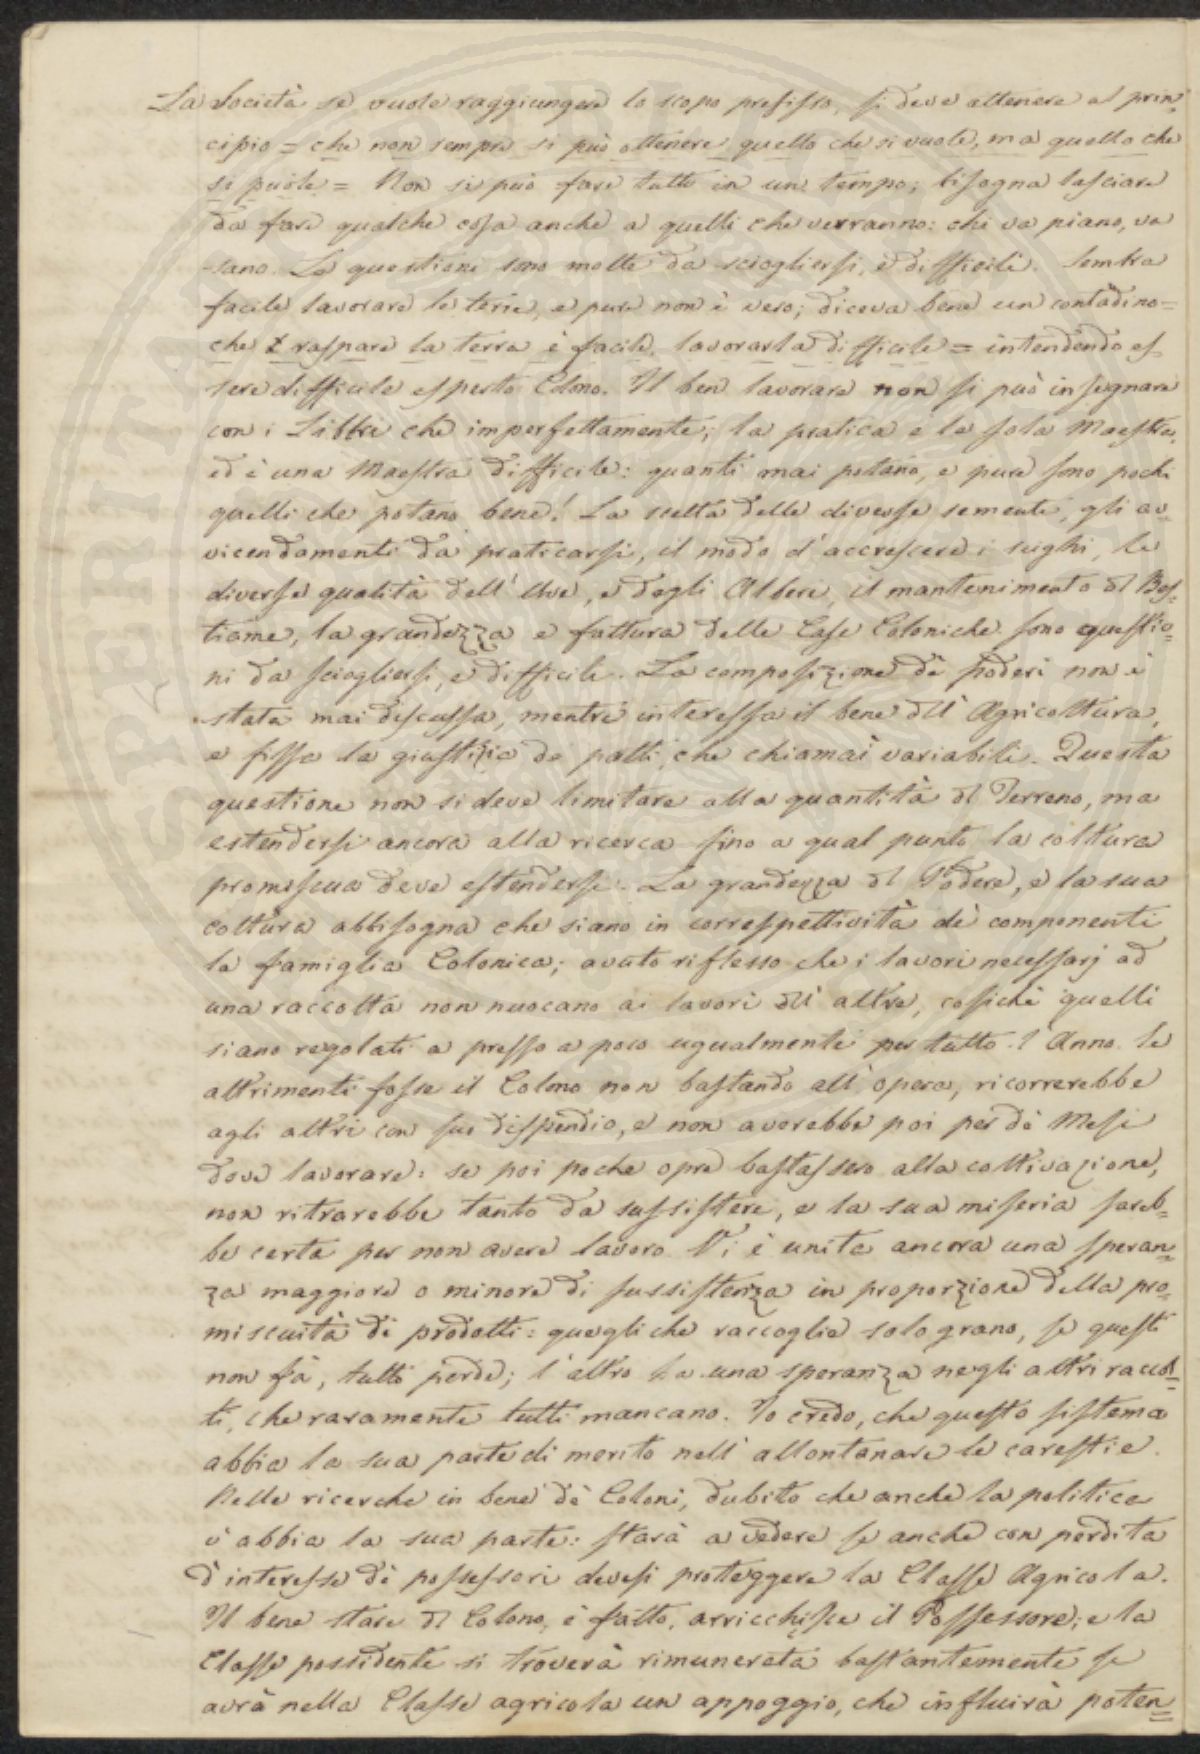 La Società se vuole raggiungere lo scopo prefisso, si deve attenere al prin=
cipio = che non sempre si può ottenere quello che si vuole, ma quello che
si puole = Non si può fare tutto in un tempo; bisogna lasciare
da fare qualche cosa anche a quelli che verranno: chi va piano, va
sano. Le questioni sono molte da sciogliersi, e difficili. Sembra
facile lavorare le terre, e pure non è vero; diceva bene un contadino=
che raspare la terra è facile, lavorarla difficile = intendendo es
sere difficile esperto Colono. Il ben lavorare non si può insegnare
con i Libbri che imperfettamente; la pratica è la sola Maestra,
ed è una Maestra difficile: quanti mai potano, e pure sono pochi
quelli che potano bene! La scelta delle diverse sementi, gli av=
vicendamenti da praticarsi, il modo d'accrescere i sughi, le
diverse qualità dell'Uve, e degli Alberi, il mantenimento del Bes=
tiame, la grandezza e fattura delle Case Coloniche sono questio=
ni da sciogliersi, e difficili. La composizione de poderi non è
stata mai discussa, mentre interessa il bene dell'Agricoltura,
e fissa la giustizia de patti, che chiamai variabili. Questa
questione non si deve limitare alla quantità del Terreno, ma
estendersi ancora alla ricerca fino a qual punto la coltura
promiscua deve estendersi. La grandezza del Podere, e la sua
coltura abbisogna che siano in correspettività dè componenti
la famiglia Colonica; avuto riflesso che i lavori necessarj ad
una raccolta non nuocano ai lavori dell'altra, cosichè quelli
siano regolati a presso a poco ugualmente per tutto l'Anno. Se
altrimenti fosse il Colono non bastando all'opera, ricorrerebbe
agli altri con suo dispendio, e non averebbe poi per dè Mesi
dove lavorare: se poi poche opre bastassero alla coltivazione,
non ritrarebbe tanto da sussistere, e la sua miseria sareb=
be certa per non avere lavoro. Vi è unita ancora una speran=
za maggiore o minore di sussistenza in proporzione della pro=
miscuità di prodotti: quegli che raccoglie solo grano, se questi
non fà, tutto perde; l'altro ha una speranza negli altri raccol=
ti, che raramente tutti mancano. Io credo, che questo sistema
abbia la sua parte di merito nell'allontanare le carestie.
Nelle ricerche in bene dè Coloni, dubito che anche la politica
v'abbia la sua parte: starà a vedere se anche con perdita
d'interesse dè possessori devesi proteggere la Classe Agricola.
Il bene stare del Colono, è fatto, arricchisce il Possessore; e la
Classe possidente si troverà rimunerata bastantemente se
avrà nella Classe agricola un appoggio, che influirà poten=